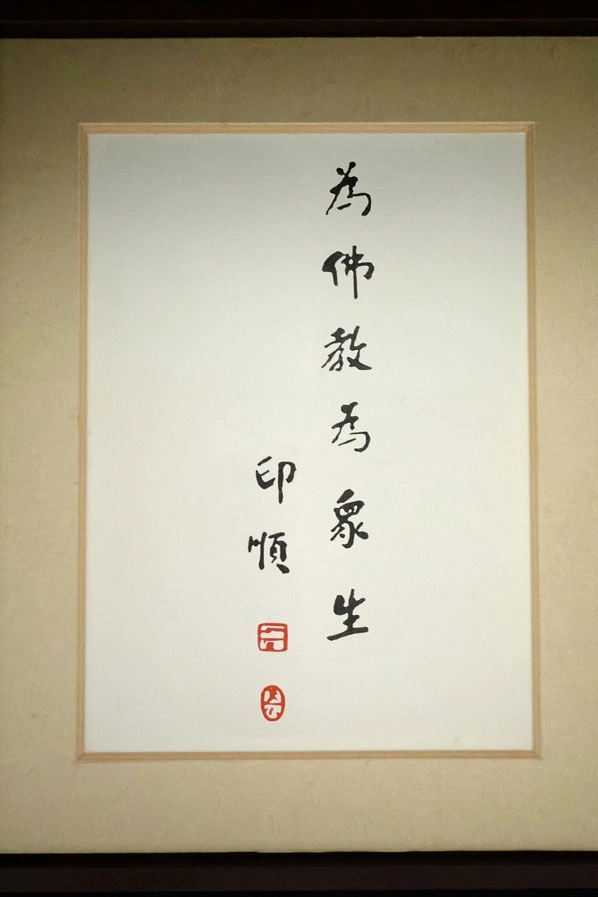 為佛教為眾生
印順